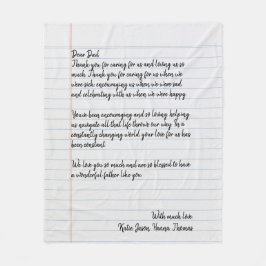 Dear Dad,
Thank you for caring for us and loving us so
much. Thank you for caring for us when we
were sick; encouraging us when we were sad
and celebrating with us when we were happy.
You've been encouraging and so loving helping
us navigate all that life throws our way. In a
constantly changing world your love for us has
been constant.
We love you so much and are so blessed to have
a wonderful father like you.
With much love
Katie Jason Hanna Thomas